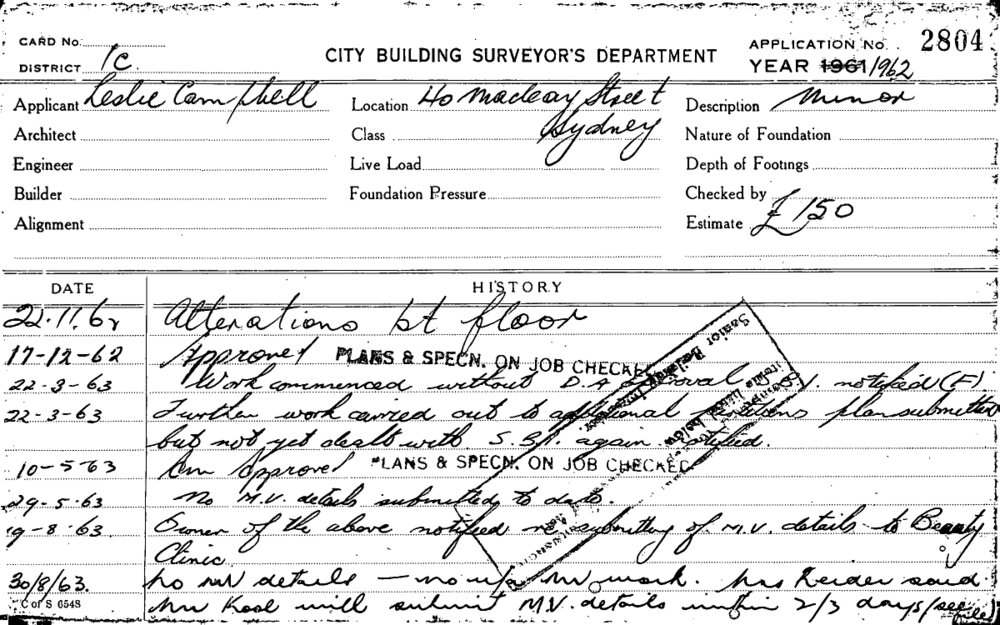 CARD No.
DISTRICT 1C
CITY BUILDING SURVEYOR'S DEPARTMENT
APPLICATION No. 2804
YEAR 1961/1962
Applicant Leslie Campbell
Location 40 Macleay Street
Sydney
Description Minor
Architect
Class
Nature of Foundation
Engineer
Live Load
Depth of Footings
Builder
Foundation Pressure
Checked by
Alignment
Estimate £150
DATE HISTORY
22.11.62 Alterations 1st floor
17-12-62 Approved PLANS & SPECN. ON JOB CHECKED
22-3-63 Work commenced without D.A approval notified (F)
22-3-63 Further work carried out to additional partitions plan submitted
but not yet dealt with. again notified.
10-5-63 Am Approved PLANS & SPECN. ON JOB CHECKED
29-5-63 No M.V. details submitted to date.
19-8-63. Owner of the above notified re submitting of M.V. details to Beauty
Clinic.
30/8/63. No MV details — no work. Mrs said
Mr will submit M.V. details within 2/3 days (see file)
C of S 6548
Senior